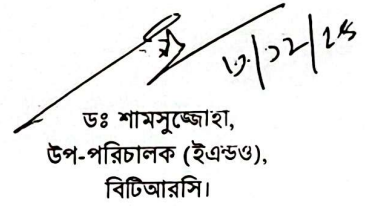 ডঃ শামসুজ্জোহা,
উপ-পরিচালক (ইএন্ডও),
বিটিআরসি।